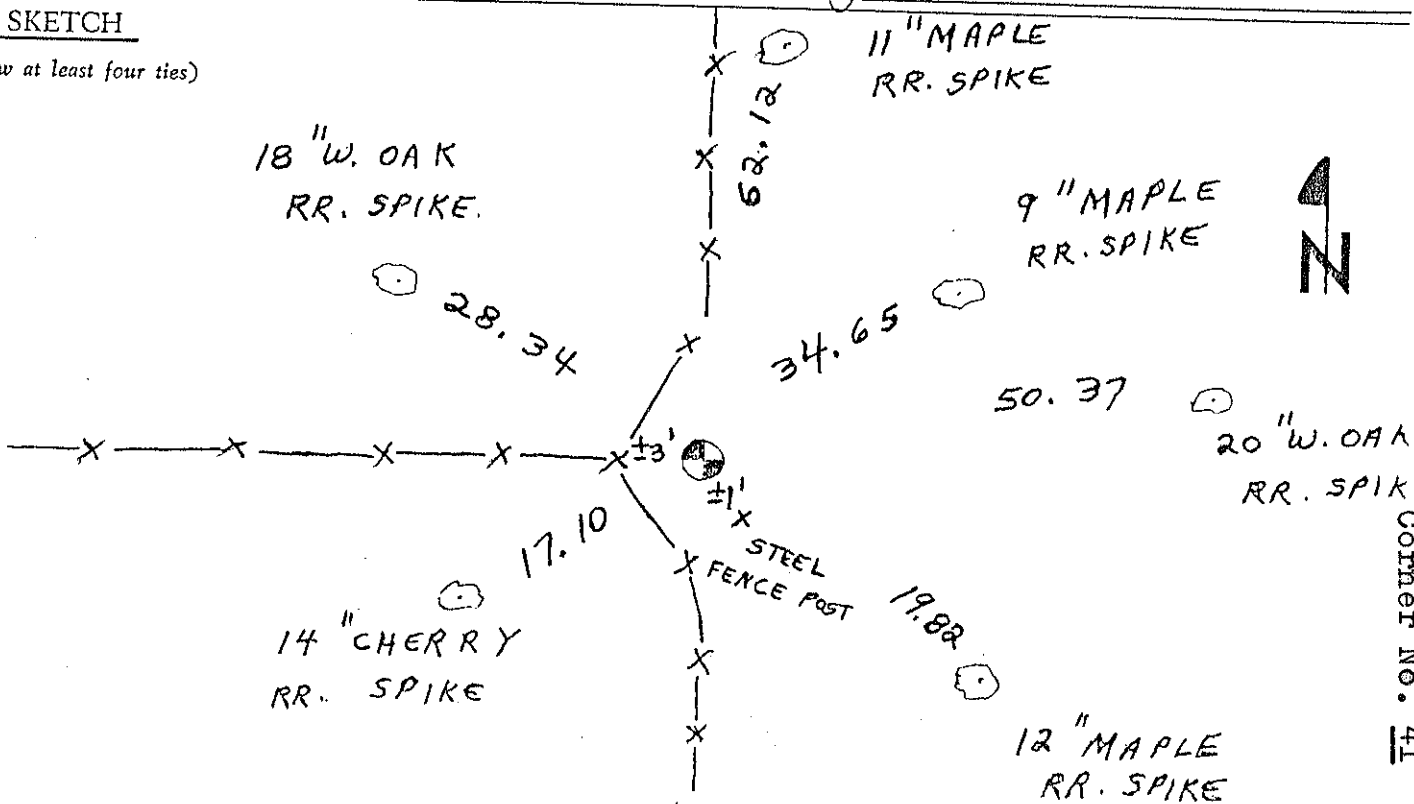 SKETCH
w at least four ties)
11 "MAPLE
RR. SPIKE
62.12
18 "W. OAK
RR. SPIKE.
9 "MAPLE
RR. SPIKE
N
28.34
34.65
50.37
20 "W. OAK
RR. SPIK
±3'
±1'
STEEL
FENCE POST
17.10
19.82
14 "CHERRY
RR. SPIKE
12 "MAPLE
RR. SPIKE
Corner No. 41